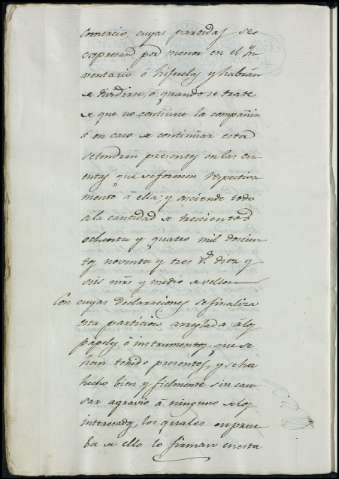 comercio, cuyas partidas se
expresan por menor en el Yn
ventario ó hijuelas y habran
de dividirse, quando se trate
de que no continue la compañia
ó en caso de continuar esta
se tendran presentes en las cu
entas que se formen respectiva
mente á ella; y asciende todo
á la cantidad de trecientos
ochenta y quatro mil docien
tos noventa y tres r.s diez y
seis mrs y medio de vellon
Con cuyas declaraciones se finaliza
esta particion arreglada á los
papeles é instrumentos que se
han tenido presentes, y se ha
hecho bien y fielmente sin cau
sar agravio á ninguno de los
interesados, los quales en prue
ba de ello lo firman en esta